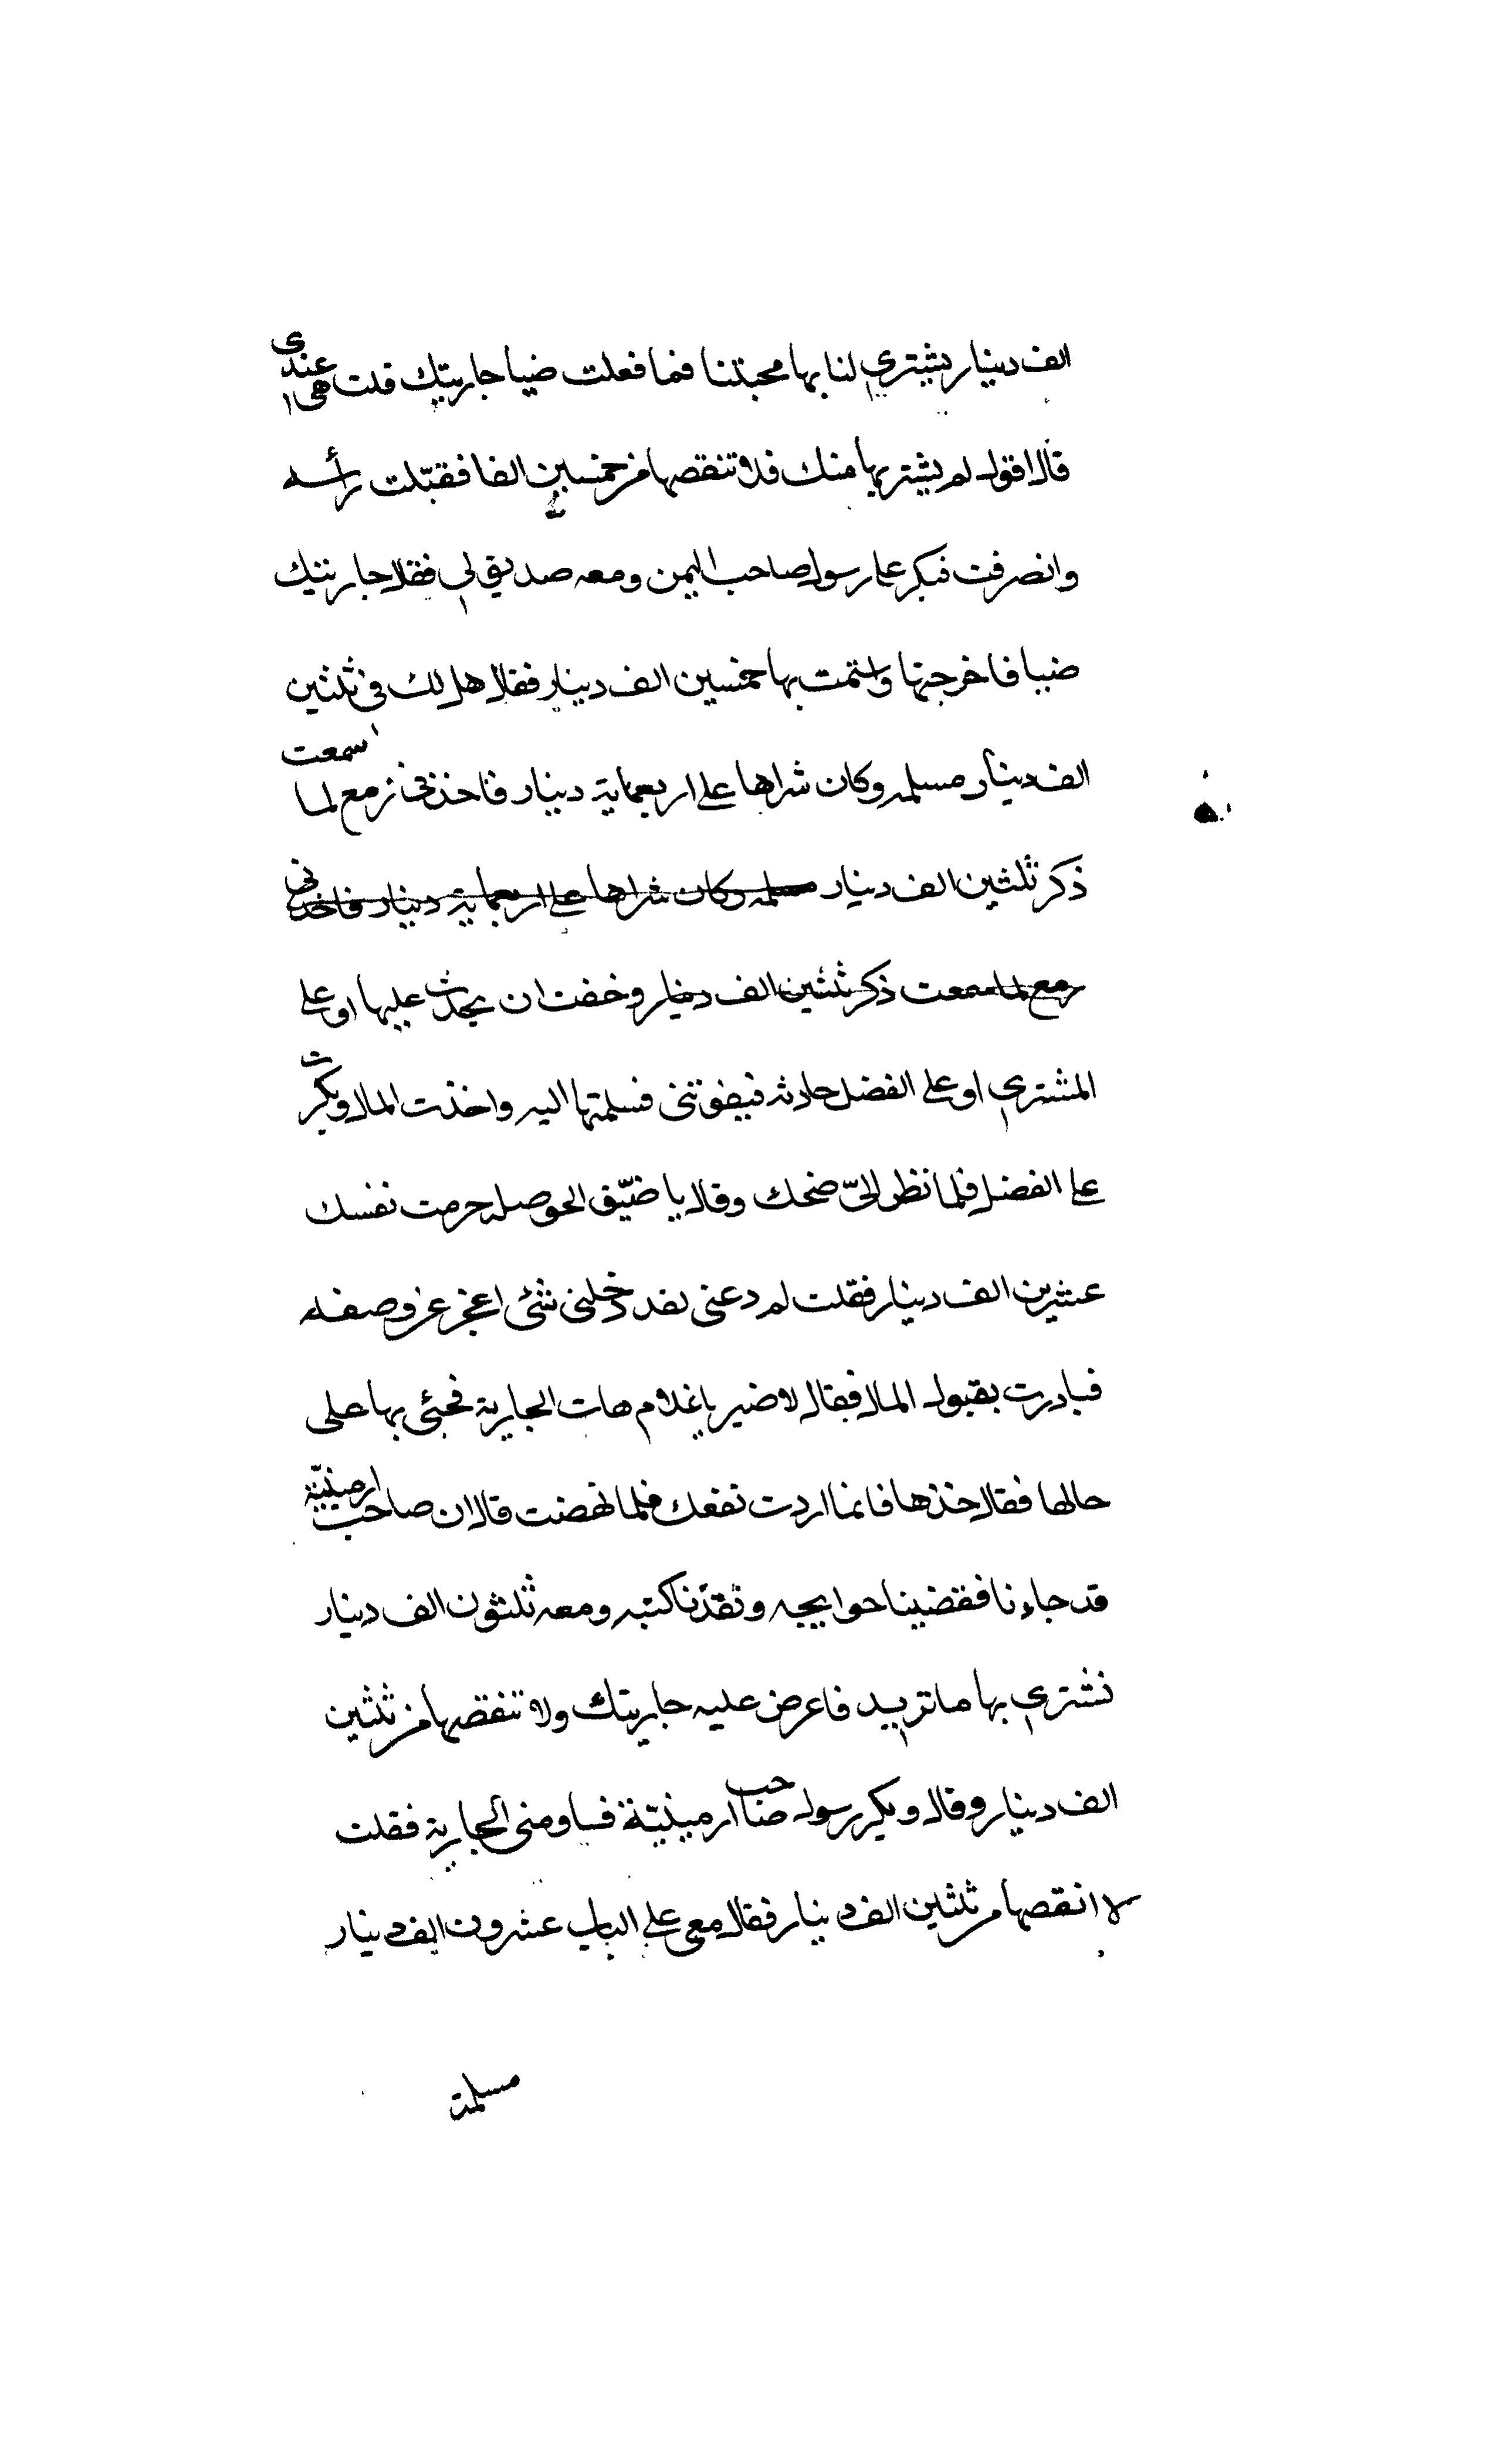 الف دينار يشتري لنا بها محبتنا فما فعلت ضيا جاريتك قلت هي عندي
قال اقول له يشتريها منك فلا تنقصها من خمسين الفا فقبّلت رأسه
وانصرفت فبكر على رسول صاحب اليمن ومعه صديق لي فقلا جاريتك
ضيا فاخرجتها واستمت بها خمسين الف دينار فقلا هل لك في ثلثين
الف دينار مسلمه وكان شراها على اربعماية دينار فاخذني زمع لما سمعت
ذكر ثلثين الف دينار مسلمه وكان شراها على اربعماية دينار فاخذني
زمع لما سمعت ذكر ثلثين الف دينار وخفت ان يحدث عليها او على
المشتري او على الفضل حادثه فيفوتني فسلمتها اليه واخذت المال وبكرت
على الفضل فلما نظر اليّ ضحك وقال يا ضيّق الحوصله حرمت نفسك
عشرين الف دينار فقلت له دعني لقد دخلني شئ اعجز عن وصفه
فبادرت بقبول المال فقال لا ضير يا غلام هات الجارية فجئي بها على
حالها فقال خذها فانما اردت نفعك فلما نهضت قال ان صاحب ارمينيّة
قد جاءنا فقضينا حوايجه ونقدنا كتبه ومعه ثلثون الف دينار
نشتري بها ما تريد فاعرض عليه جاريتك ولا تنقصها من ثلثين
الف دينار وقال وبكر رسول صاحب ارمينيّة فساومني الجارية فقلت
لا انقصها من ثلثين الف دينار فقال معي على الباب عشرون الف دينار
مسلمة